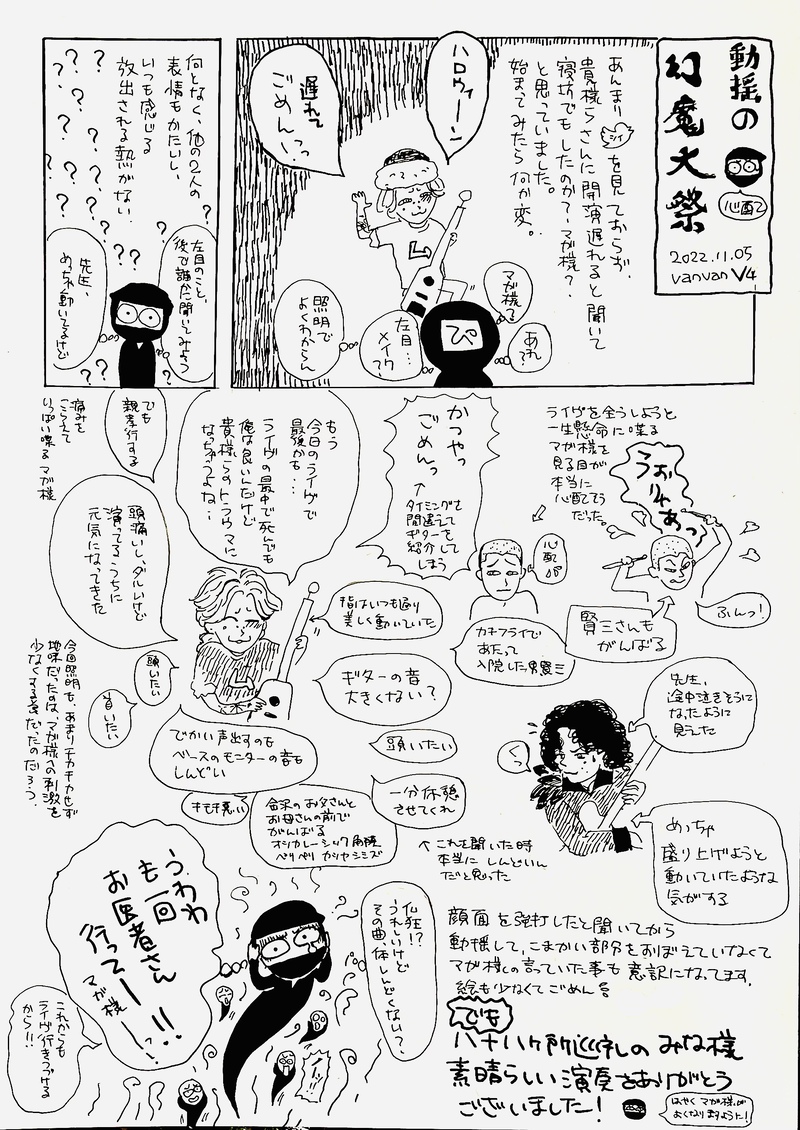 動揺の
幻魔大祭
心配で
2022.11.05
vanvan V4
あんまり
ツイ
を見ておらず、
貴様らさんに開演遅れると聞いて
寝坊でもしたのか?マガ様?
と思っていました。
始まってみたら何か変。
ハロウィーン
遅れて
ごめんっ
マガ様?
あれ?
ぴ
左目…
メイク?
照明で
よくわからん
何となく、他の2人の
表情もかたいし、
いつも感じる
放出される熱がない
左目のこと、
後で誰かに聞いてみよう
先生、
めっちゃ動いてるけど
ライヴを全うしようと
一生懸命に喋る
マガ様を
見る目が
本当に
心配そう
だった。
うおりゃあっ
ふんっ!
賢三さんも
がんばる
かつやっ
ごめんっ
↑
タイミングを
間違えて
ギターを
紹介して
しまう
心配
カキフライで
あたって
入院した男賢三
もう
今日のライヴで
最後かも…
ライヴの最中で死んでも
俺は良いんだけど
貴様らのトラウマに
なっちゃうよね…
でも
親孝行する
痛みを
こらえて
いっぱい喋るマガ様
頭痛いし、ダルいけど
演ってるうちに
元気になってきた
指はいつも通り
美しく動いていた
ギターの音
大きくない?
頭いたい
首いたい
でかい声出すのも
ベースのモニターの音も
しんどい
頭いたい
一分休憩
させてくれ
キモチ悪い
金沢のお父さんと
お母さんの前で
がんばる
↑これを聞いた時
本当にしんどいん
だと思った
先生、
途中泣きそうに
なったように
見えた
くっ
めっちゃ
盛り上げようと
動いていたような
気がする
今回照明も、あまりチカチカせず
地味だったのは、マガ様への刺激を
少なくする為だったのだろう。
うわわ
もう一回
お医者さん
行ってーー!!
マガ様ーーっ
これからも
ライヴ行きつづける
から!!
仏狂!?
うれしいけど
その曲、体しんどくない?
顔面を強打したと聞いてから
動揺して、こまかい部分をおぼえていなくて
マガ様の言っていた事も意訳になってます。
絵も少なくてごめん
でも
八十八ヶ所巡礼のみな様
素晴らしい演奏をありがとう
ございました!
はやくマガ様が
よくなりますように!